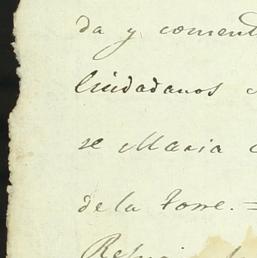 da y coment
Ciudadanos
se Maria
de la Torre. =